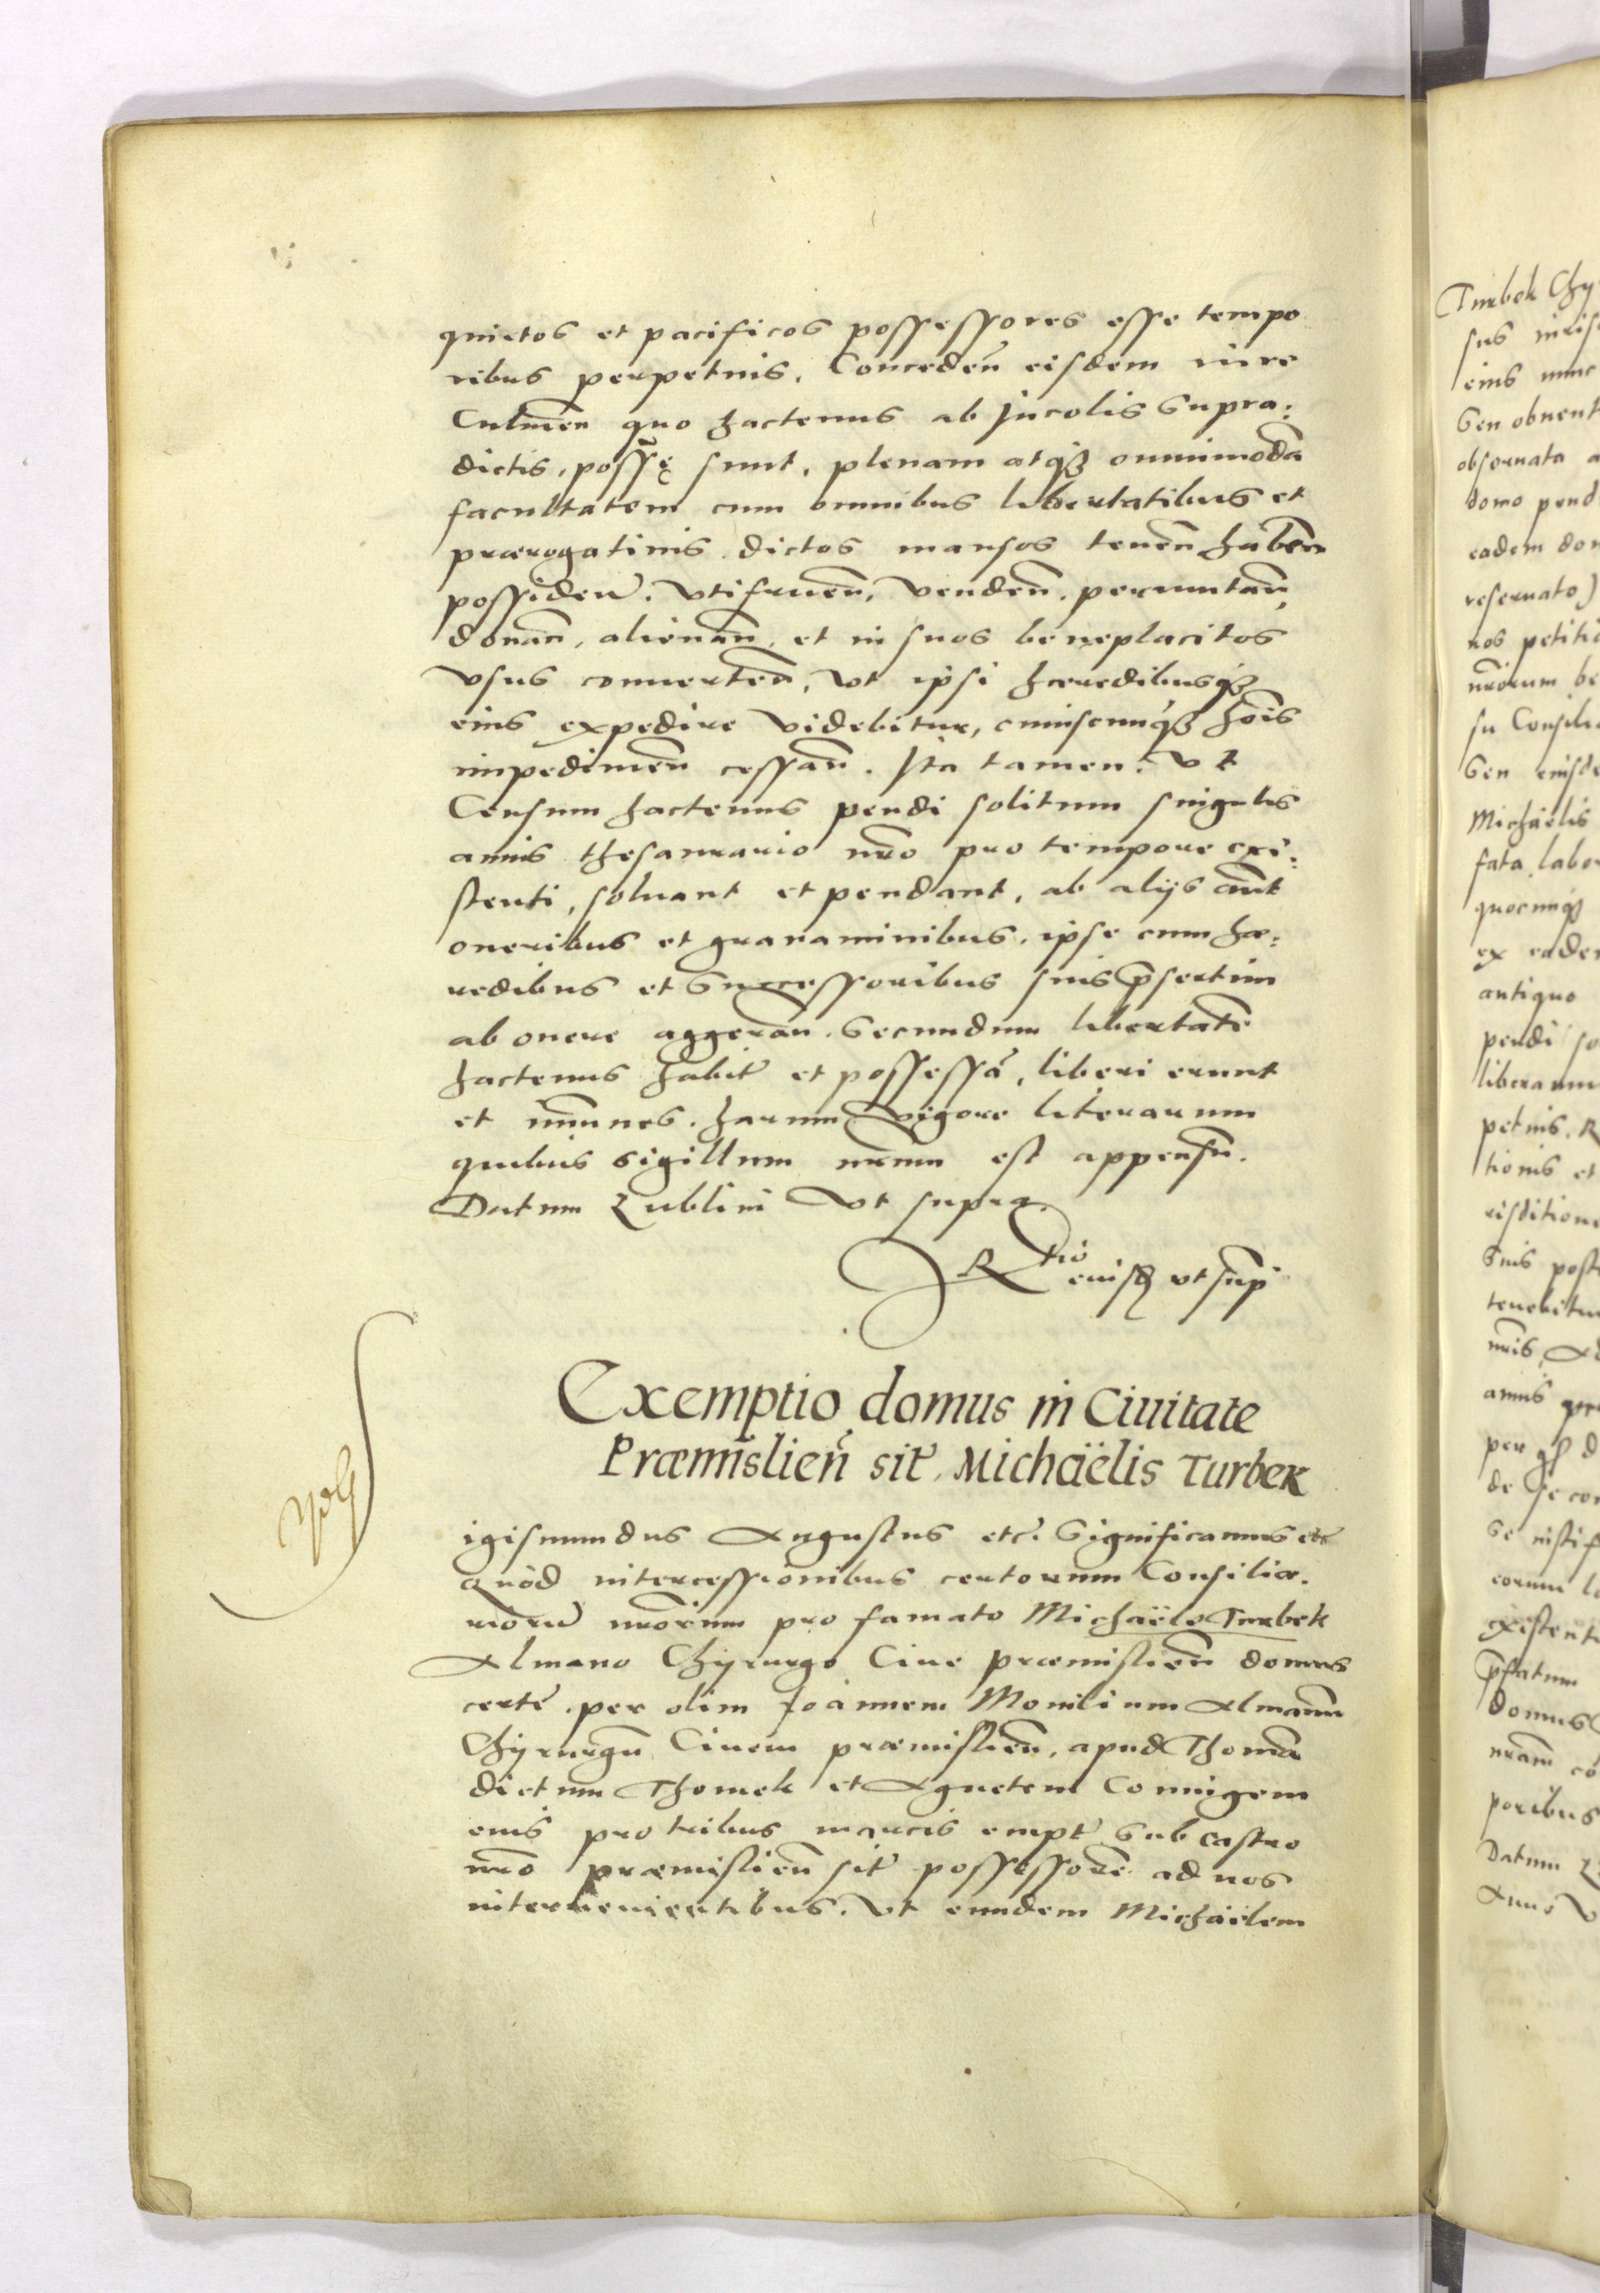 quietos et pacificos possessores esse tempo
ribus perpetuis. Conceden̄ eisdem iure
Culmen̄ quo hactenus ab Incolis supra:
dictis, posse̜ sunt, plenam atq3 omnimodā
facultatem cum omnibus libertatibus et
prærogatiuis dictos mansos tenen̄ haben̄
possiden̄. Vtifruen̄, venden̄. permutan̄,
donan̄, alienan̄, et in suos beneplacitos
vsus conuerten̄, vt ipsi hæredibusq3
eius expedire videbitur, cuiuscunq3 hōis
impedimen̄ cessan̄. Ita tamen: vt
Censum hactenus pendi solitum singulis
annis thesaurario nr̄o pro tempore exi:
stenti, soluant et pendant, ab alijs aūt
oneribus et grauaminibus, ipse cum hæ:
redibus et Successoribus suis p̄sertim
ab onere aggeran̄. Secundum libertatē
hactenus habit̄ et possessā, liberi erunt
et im̄unes. harum vigore literarum
quibus sigillum nr̄um est appensū.
Datum Lublini vt supra.
R tio eiusd vt sup̄
Exemptio domus in Ciuitate
Præmislien̄ sit̄ Michaëlis Turbek
igismundus Augustus etc̄. Significamus etc̄
Quòd intercessionibus certorum Consilia.
riorū nr̄orum pro famato Michaële Turbek
Almano Chyrurgo Ciue præmislien̄ domus
certē per olim Joannem Monilium Almanū
Chyrurgū Ciuem præmislien̄, apud Thomā
dictum Thomek et Agnetem Coniugem
eius pro tribus marcis empt̄ sub castro
nr̄o præmislien̄ sit̄ possessorē ad nos
interuenientibus. Vt eundem Michaëlem
Turbek Chy
sus
eius nunc
seu obuent
obseruata a
domo pend
eadem do
reseruato)
nos petitio
nr̄orum be
su Consili
seu eiusde
Michaëlis
fata labo
quocunq3
ex eade
antiquo
pendi so
petuis. R
tionis et
suis post
tenebitu
nr̄is, A
annis
per d
de se co
eorum l
existent
p̄fatum
domus
nr̄am co
poribus
Datum L
Anno